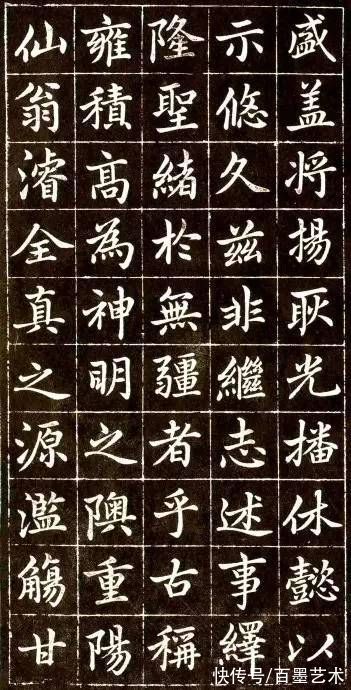 盛盖将揚耿光播休懿以
示悠久兹非繼志述事繹
隆聖緒於無疆者乎古稱
雍積高為神明之隩重陽
仙翁濬全真之源濫觴甘
快传号/百墨艺术